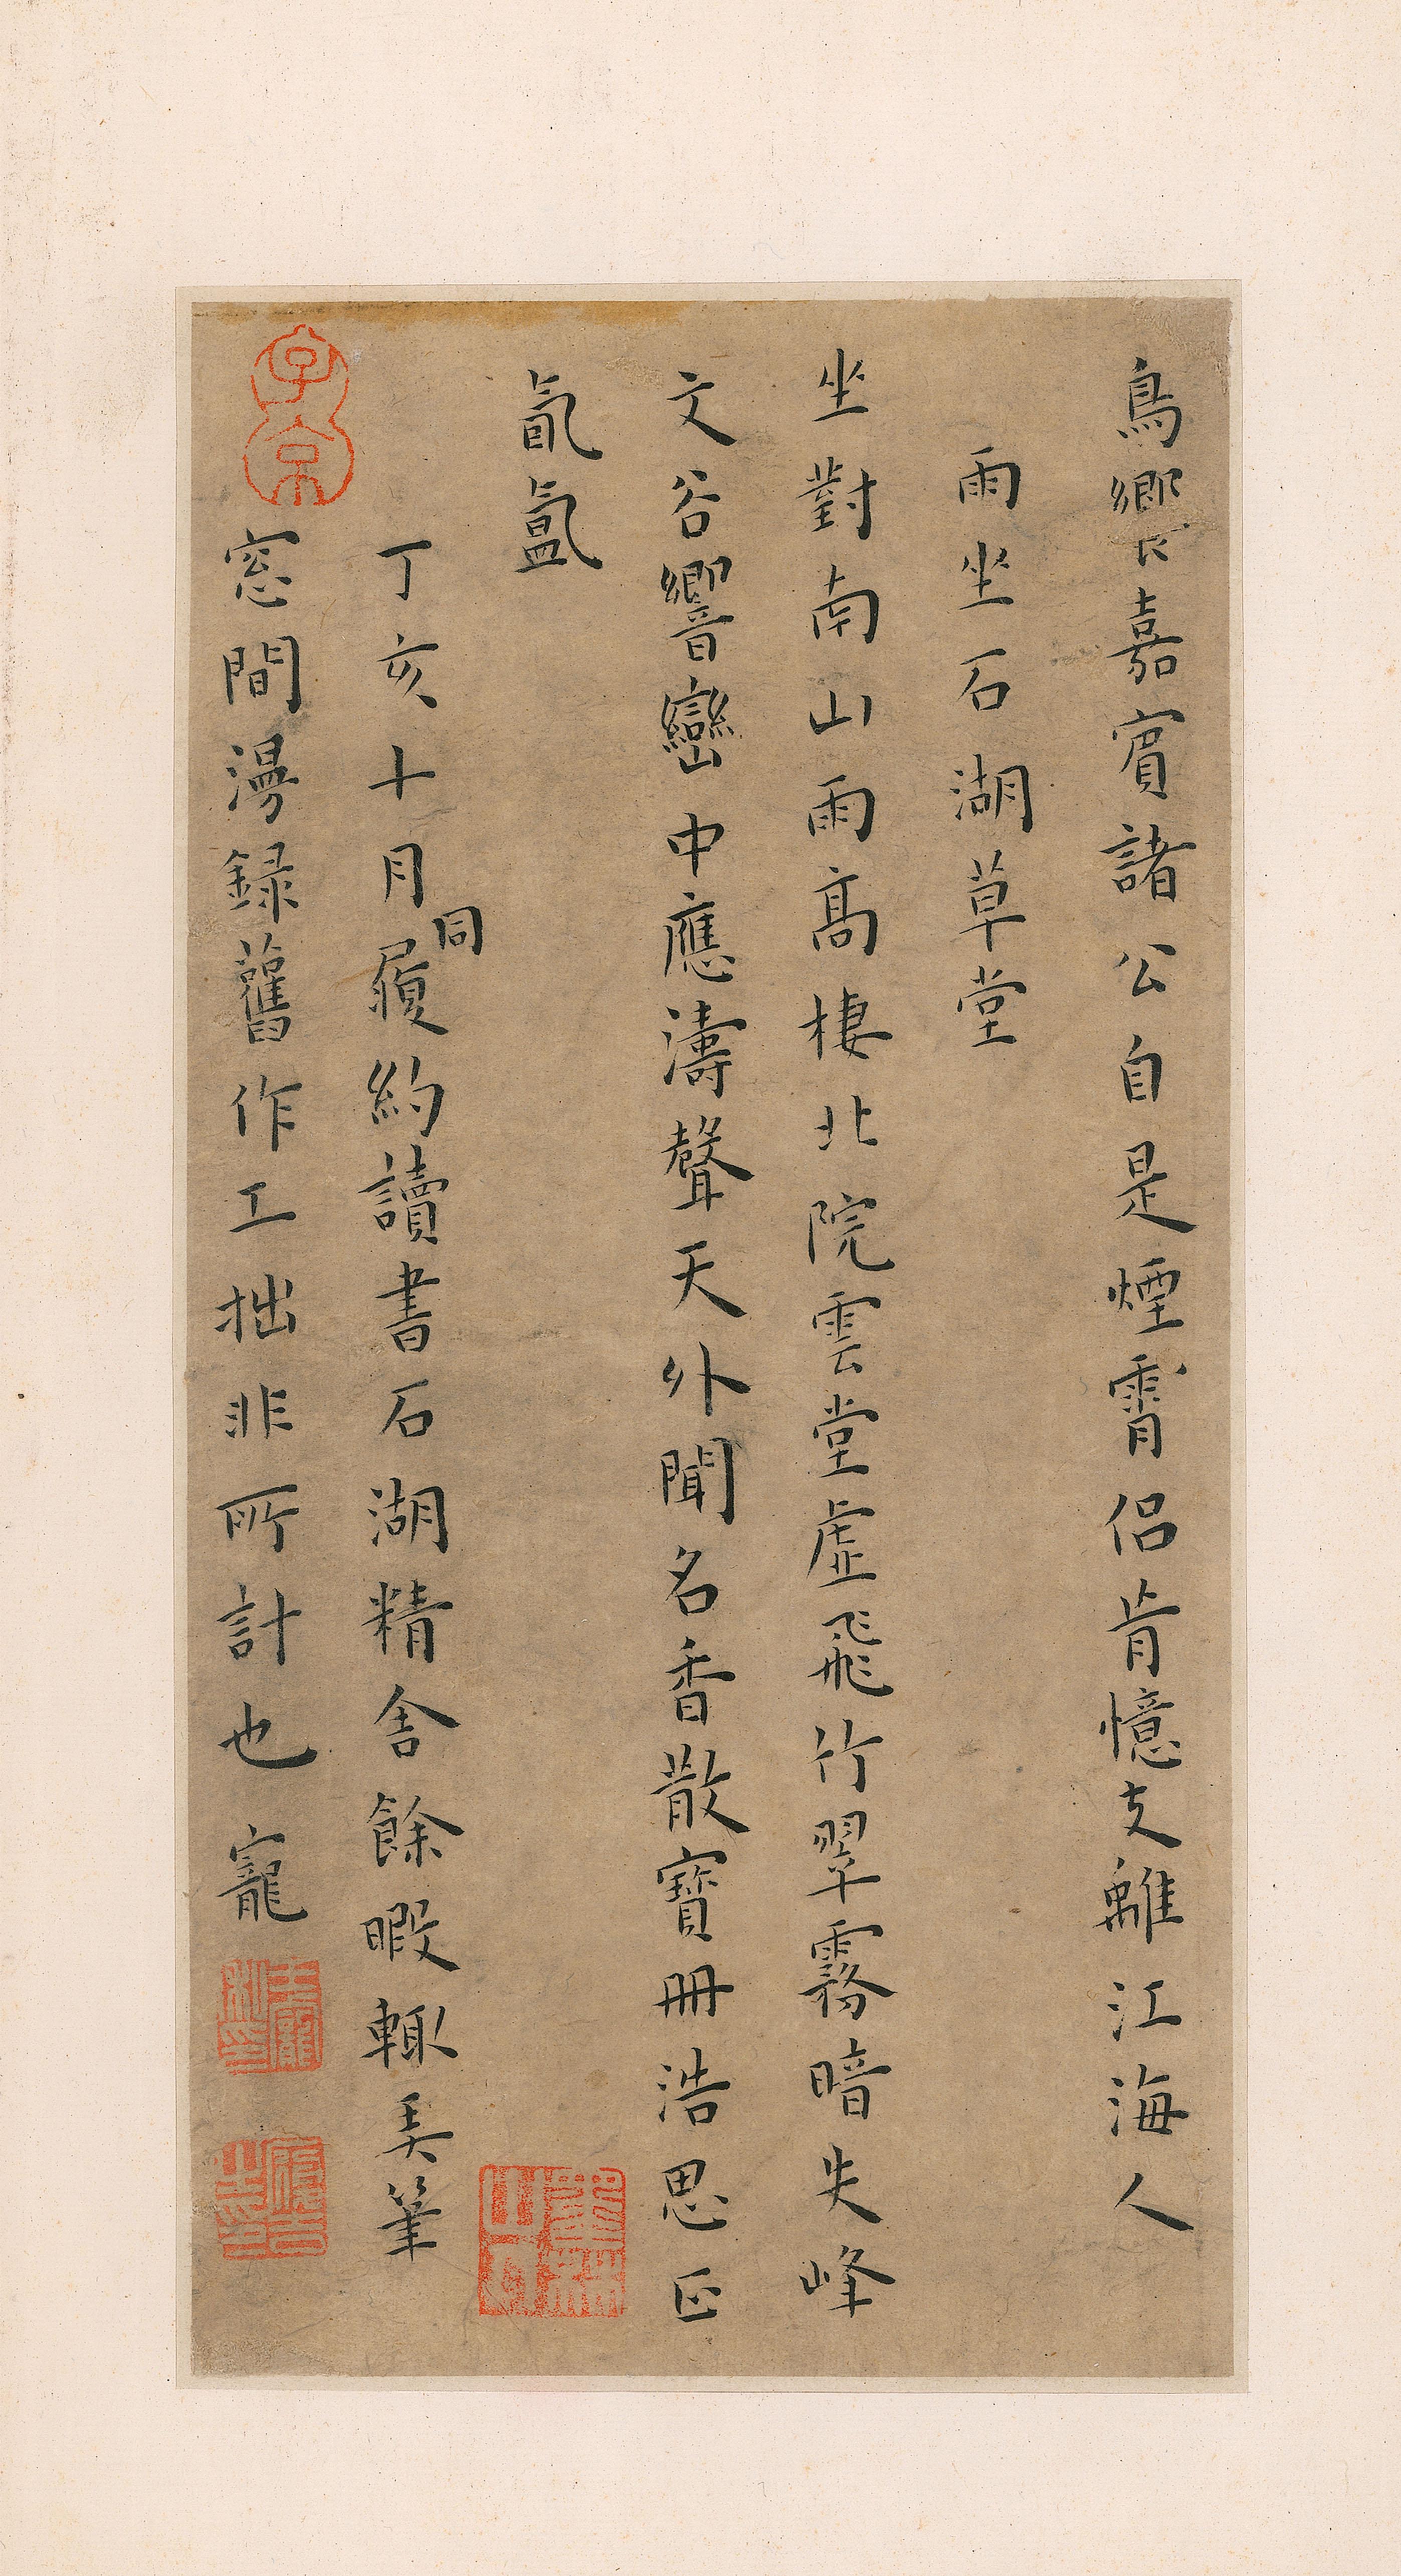 鳥響嘉賓諸公自是煙霄侶肯憶支離江海人
雨坐石湖草堂
坐對南山雨高棲北院雲堂虛飛竹翠霧暗失峰
文谷響巒中應濤聲天外聞名香散寶冊浩思正
氤氳
丁亥十月同履約讀書石湖精舍餘暇輒弄筆
窓間漫録舊作工拙非所計也寵
子京